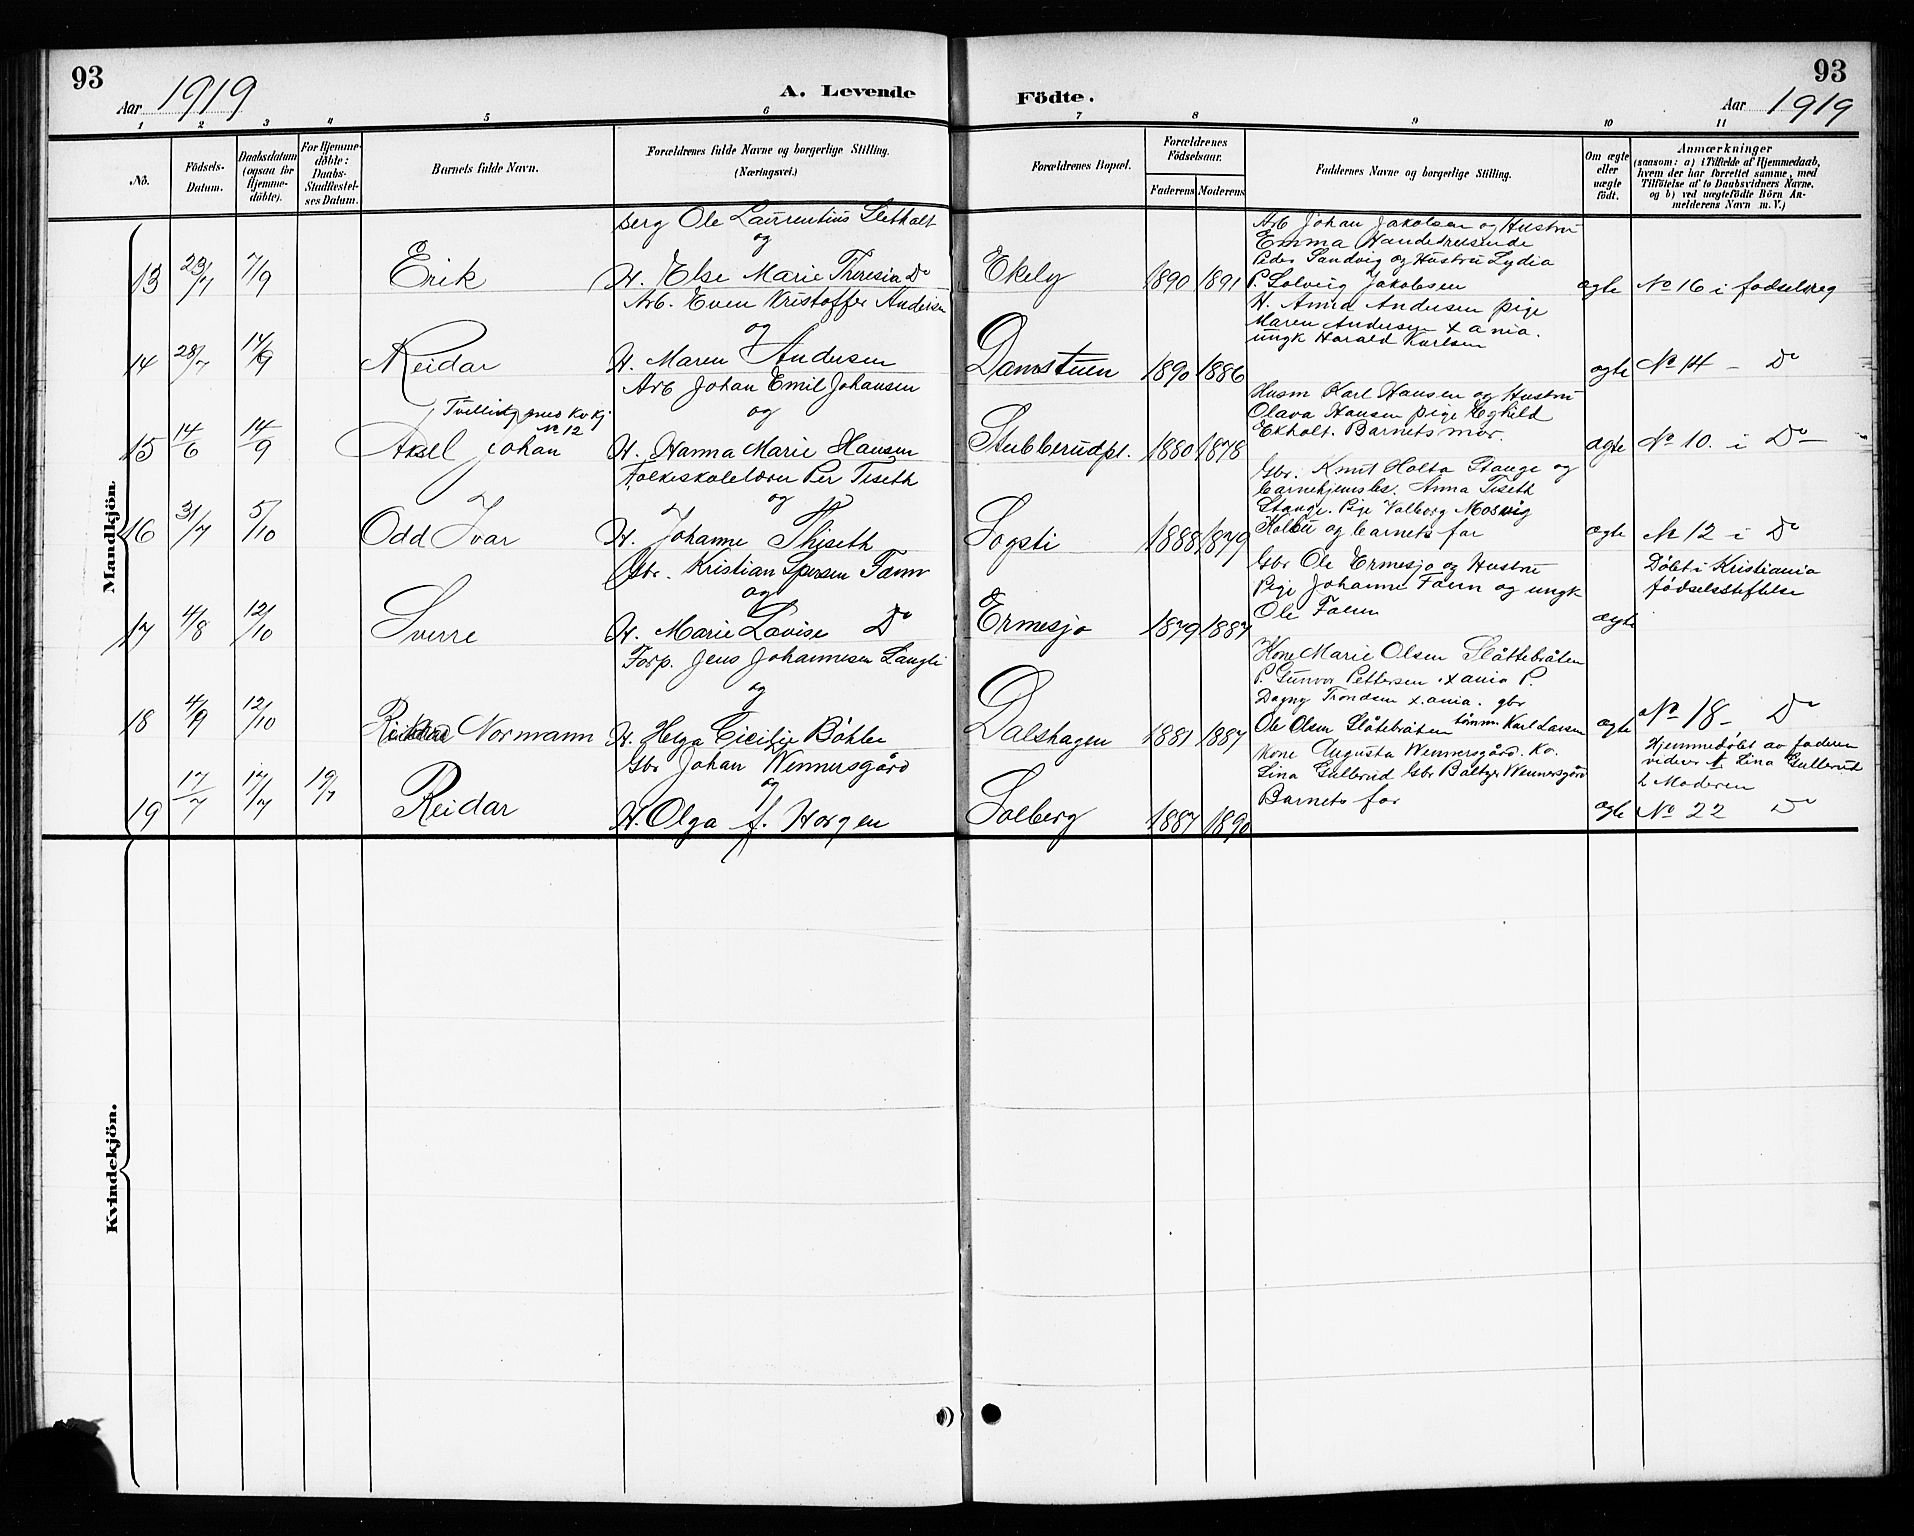 93
Aar 1919
A. Levende
Födte.
93
Aar 1919
1 2 3 4 5 6 7 8 9 10 11
No.
Födsels-
Datum.
Daabsdatum
(ogsaa for
Hjemme-
döbte).
For Hjemme-
döbte:
Daabs-
Stadfæstel-
ses Datum.
Barnets fulde Navn.
Forældrenes fulde Navne og borgerlige Stilling.
(Næringsvei.)
Forældrenes Bopæl.
Forældrenes
Födselsaar.
Faderens Moderens
Faddernes Navne og borgerlige Stilling.
Om ægte
eller
uægte
födt.
Anmærkninger
(saasom: a) i Tilfælde af Hjemmedaab,
hvem der har forrettet samme, med
Tilföielse af to Daabsvidners Navne,
og b) ved uægtefödte Börn An-
melderens Navn m. V.)
Mandkjön.
13 29/7 7/9 Erik
Serg Ole Laurentius Sletholt
og
H. Else Marie Theresia Do
Ekely 1890 1891
Arb Johan Jakobsen og Hustru
Emma Handelreisende
Peder Sandvig og Hustru Lydia
P. Solveig Jakobsen
ægte No 16 i födselsreg
14 28/7 14/9 Reidar
Arb. Even Kristoffer Andersen
og
H. Maren Andersen
Damstuen 1890 1886
H. Anna Andersen pige
Maren Andersen x ania.
ungk Harald Karlsen
ægte No 14 - Do
15 14/6 14/9
Tvilling med Kvkj
No 12
Aksel Johan
Arb Johan Emil Johansen
og
H. Hanna Marie Hansen
Stubberudpl. 1880 1878
Husm Karl Hansen og Hustru
Olava Hansen pige Eghild
Ekholt. Barnets mor.
ægte No 10. i Do
16 31/7 5/10 Odd Ivar
Folkeskolelærer Per Tiseth
og
H. Johanne Thiseth
Sogsti 1888 1879
Gbr. Knut Holta Stange og
barnehjemsbs. Anna Tiseth
Stange. Pige Valborg Mosvig
Kolbu og barnets far
ægte No 12 i Do
17 4/8 12/10 Sverre
Gbr. Kristian Ipersen Faem
og
H. Marie Lovise Do
Ermesjo 1879 1887
Gbr Ole Ermesjo og Hustru
Pige Johanne Faem og ungk
Ole Faem
ægte
Döbt i Kristiania
födselsstiftelse
18 4/9 12/10 Normann
Forp. Jens Johannesen Langli
og
H. Helga Cicilie Böhler
Dalshagen 1881 1887
Kone Marie Olsen Slåttebråten
P. Gunvor Pettersen x ania P.
Dagny Trondsen x. ania. gbr
Ole Olsen Slåtebråten tömm. Karl Larsen
ægte No 18 - Do
19 17/7 17/7 19/7 Reidar
Gbr Johan Wennersgård
og
H. Olga f. Horgen
Solberg 1887 1890
Kone Augusta Wennersgård. Kv.
Lina Gullerud Gbr Baltzer Wennersgård
Barnets far
ægte
Hjemmedöbt av faderen
vidner Lina Gullerud
& Moderen
No 22 Do
Kvindekjön.